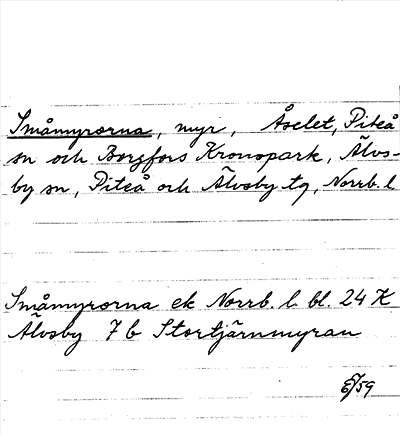 Småmyrorna, myr, Åselet, Piteå
sn och Borgfors Kronopark, Älvs-
by sn, Piteå och Älvsby tg, Norrb. l
Småmyrorna ek Norrb. l. bl. 24 K
Älvsby 7 b Stortjärnmyran
/59